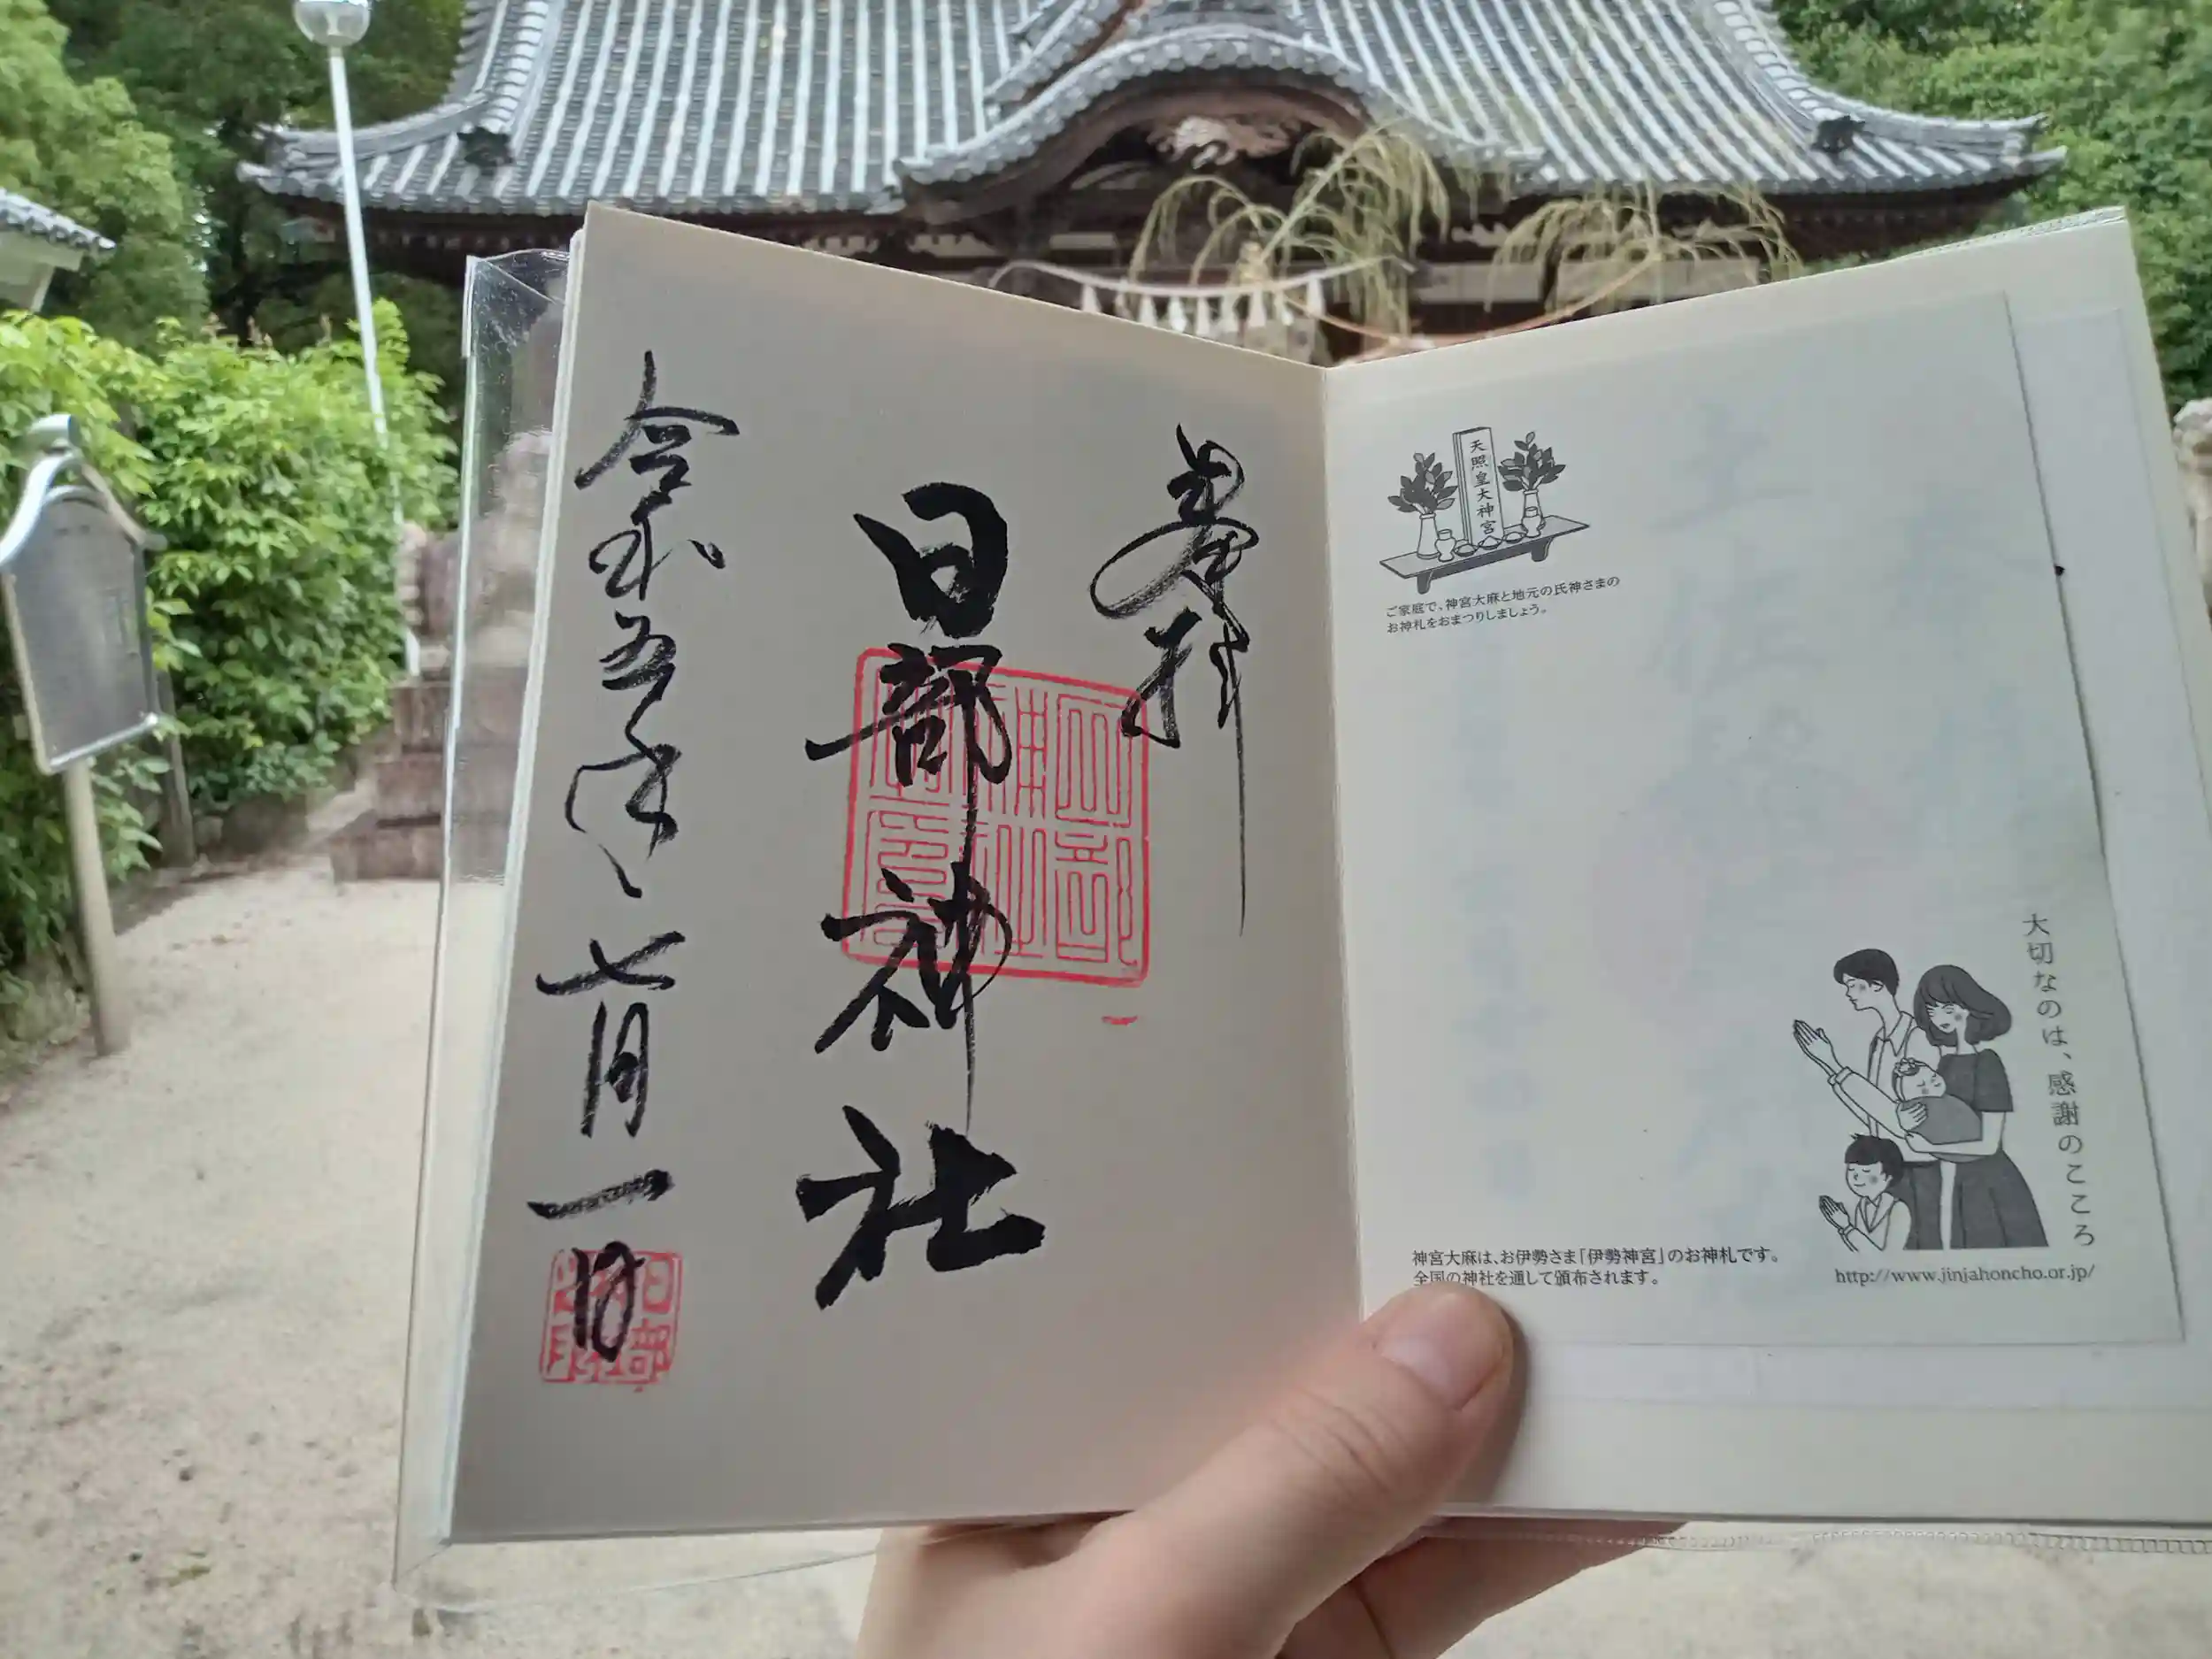 奉拝
日部神社
令和五年七月一日
日部
天照皇大神宮
ご家庭で、神宮大麻と地元の氏神さまの
お神札をおまつりしましょう。
大切なのは、感謝のこころ
神宮大麻は、お伊勢さま「伊勢神宮」のお神札です。
全国の神社を通して頒布されます。
http://www.jinjahoncho.or.jp/